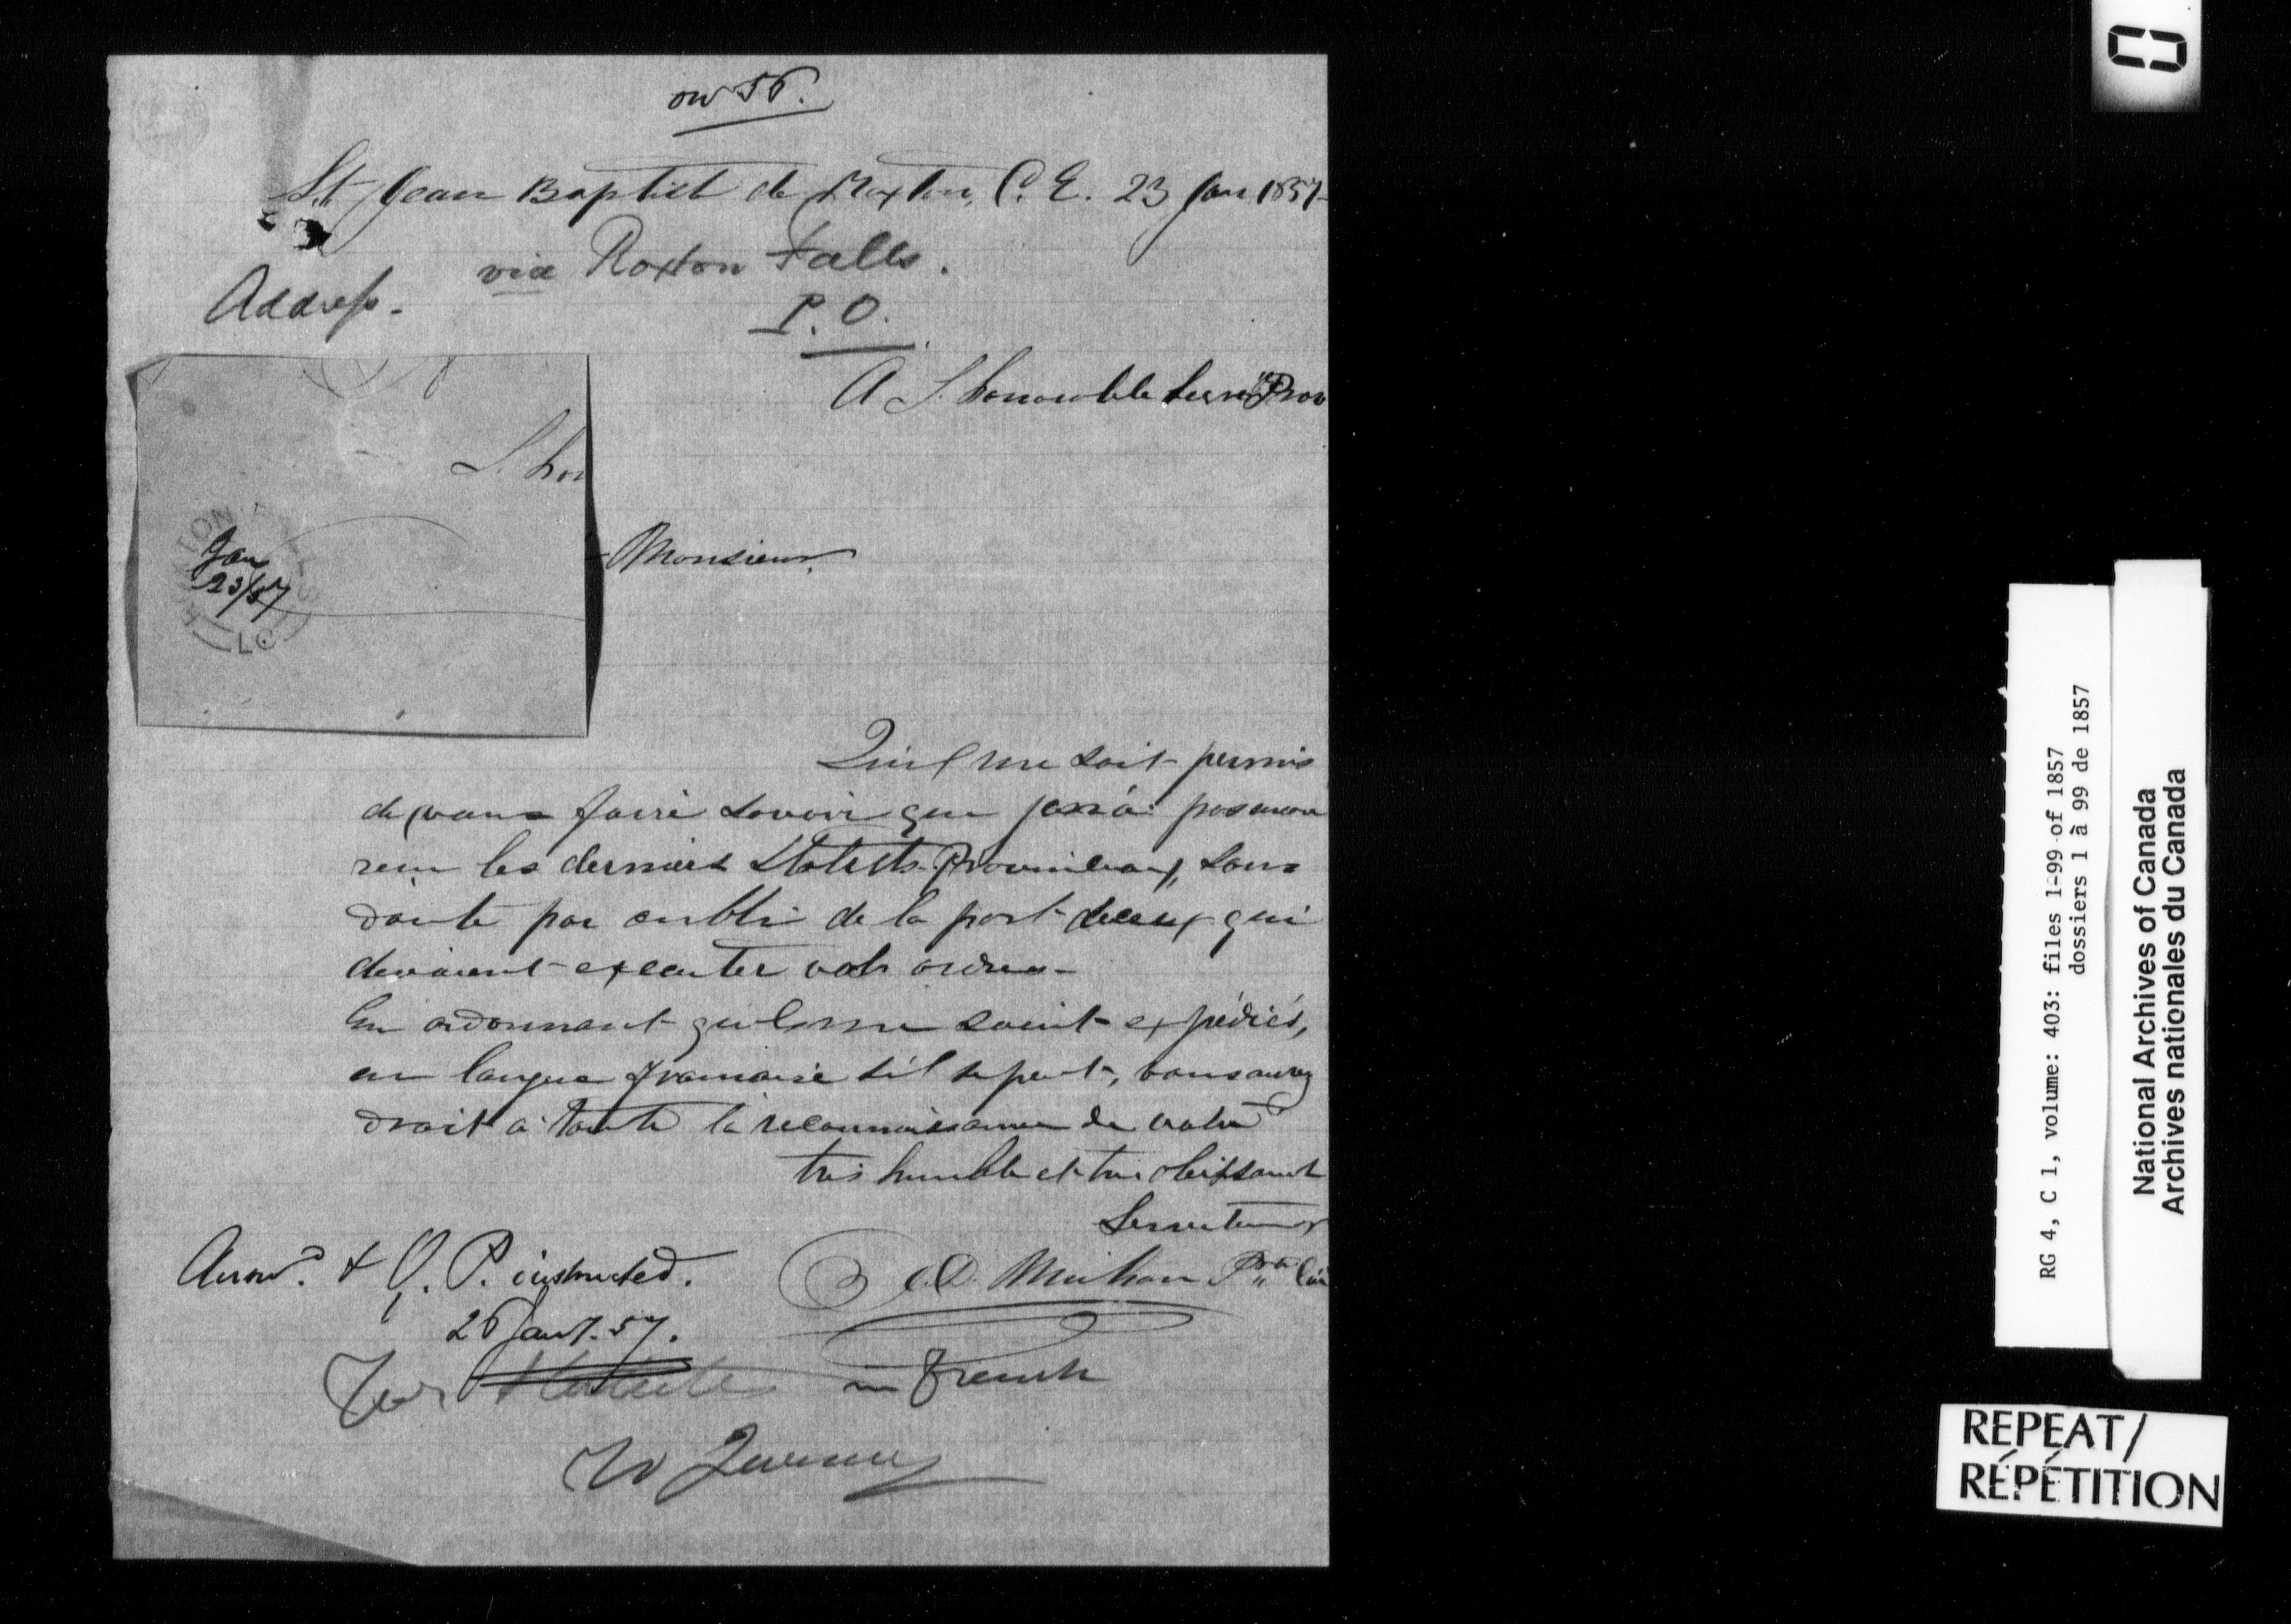 on 56.
St Jean Baptist de Roxton, C. E. 23 Jan 1857
via Roxton Falls.
Address.
P. O.
A L'honorable Secre Prov
L'hon
Jan
23/57
LC
Monsieur.
Qu'il me soit permis
de vous faire savoir que je n'ai pas encore
recu les derniers Statuts Provinciaux, sans
doute par oubli de la part de ceux qui
devaient executer vos ordres.
En ordonnant qu'ils me soient expédiés,
en langue francaise s'il se peut, vous aurez
droit à toute la reconnaissance de votre
très humble et très obéissant
Serviteur
Answd. & Q. P. instructed.
26 Jany. 57.
in French
RG 4, C 1, volume: 403: files 1-99 of 1857
dossiers 1 à 99 de 1857
National Archives of Canada
Archives nationales du Canada
REPEAT/
RÉPÉTITION